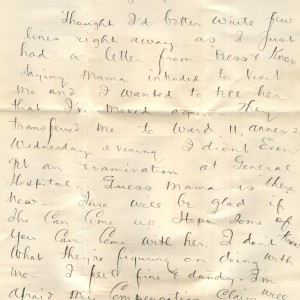 Thought I'd better write few
lines right away as I just
had a letter from Bess & Know
saying Mama intended to visit
me and I wanted to tell her
that I've moved again They
transferred me to Ward 11, annex
Wednesday evening I didn't Even
get an examination at General
Hospital. Guess Mama is there
now. Sure will be glad if
She Can Come up. Hope Some of
You Can Come with her. I don't know
What they're figuring on doing with
me I feel fine & dandy. I'm
afraid my Compensation Claim will